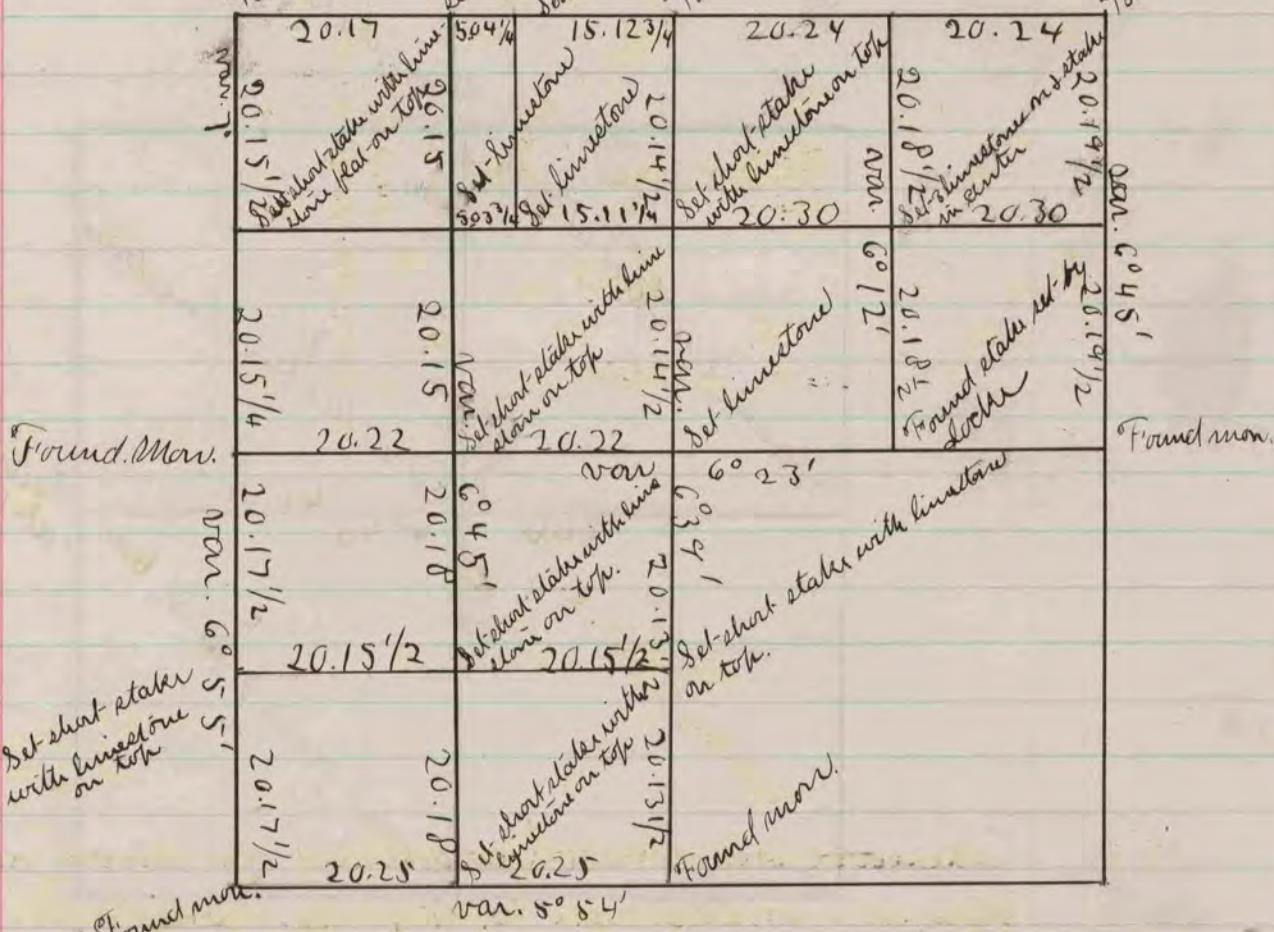 20.17
5.04 1/4
15.12 3/4
20.24
20.24
var. 7°
20.15 1/2
Set short stake with lime-
stone flat on top
20.15
Set limestone
Set limestone
20.14 1/2
Set short stake
with limestone on top
var. 6° 12'
20.18 1/2
Set 2 limestones and stake
in center
20.19 1/2
var. 6° 45'
5.03 3/4
15.11 1/4
20.30
20.30
20.15 1/4
20.15
var. 6° 45'
Set short stake with lime
stone on top
20.14 1/2
var. 6° 39'
Set limestone
20.18 1/2
Found stake set by
Locke
20.19 1/2
Found Mon.
20.22
20.22
Found mon.
var 6° 23'
var. 6° 55'
20.17 1/2
20.18
Set short stake with lime
stone on top.
20.13 1/2
Set short stake with limestone
on top.
20.15 1/2
20.15 1/2
Set short stake
with limestone
on top
20.17 1/2
20.18
Set short stake with
limestone on top
20.13 1/2
Found mon.
20.25
20.25
Found mon.
var. 5° 54'